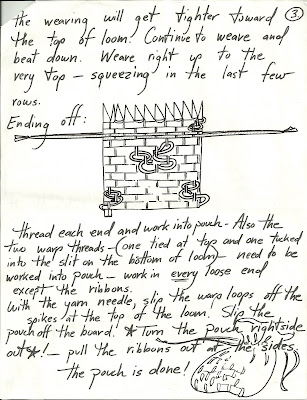 the weaving will get tighter toward ③
the top of loom. Continue to weave and
beat down. Weave right up to the
very top – squeezing in the last few
rows.
Ending off:
thread each end and work into pouch - Also the
two warp threads - (one tied at top and one tucked
into the slit on the bottom of loom) - need to be
worked into pouch - work in every loose end
except the ribbons.
With the yarn needle, slip the warp loops off the
spikes at the top of the loom. Slip the
pouch off the board! *turn the pouch rightside
out*! — pull the ribbons out at the sides
the pouch is done!